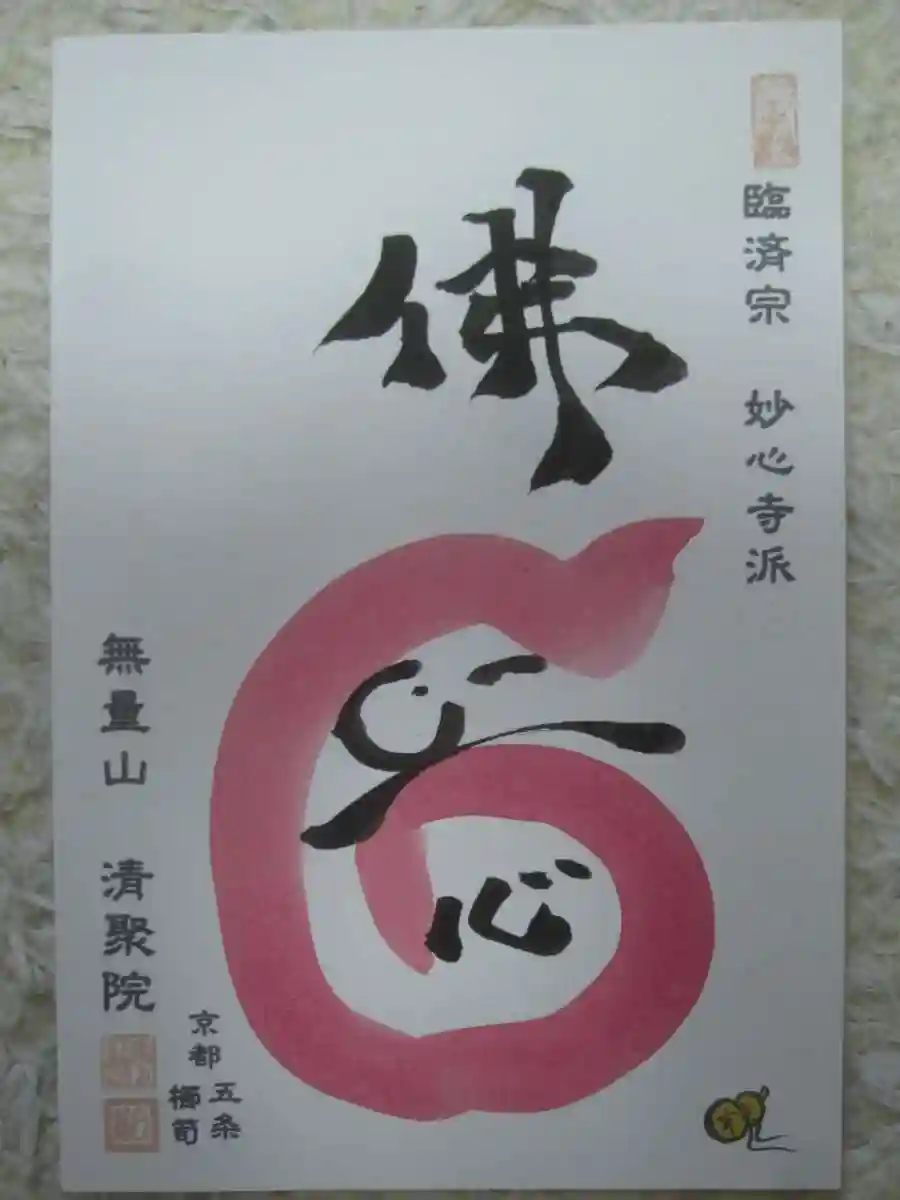 臨済宗　妙心寺派
佛心
無量山　清聚院
京都
五条
櫛笥